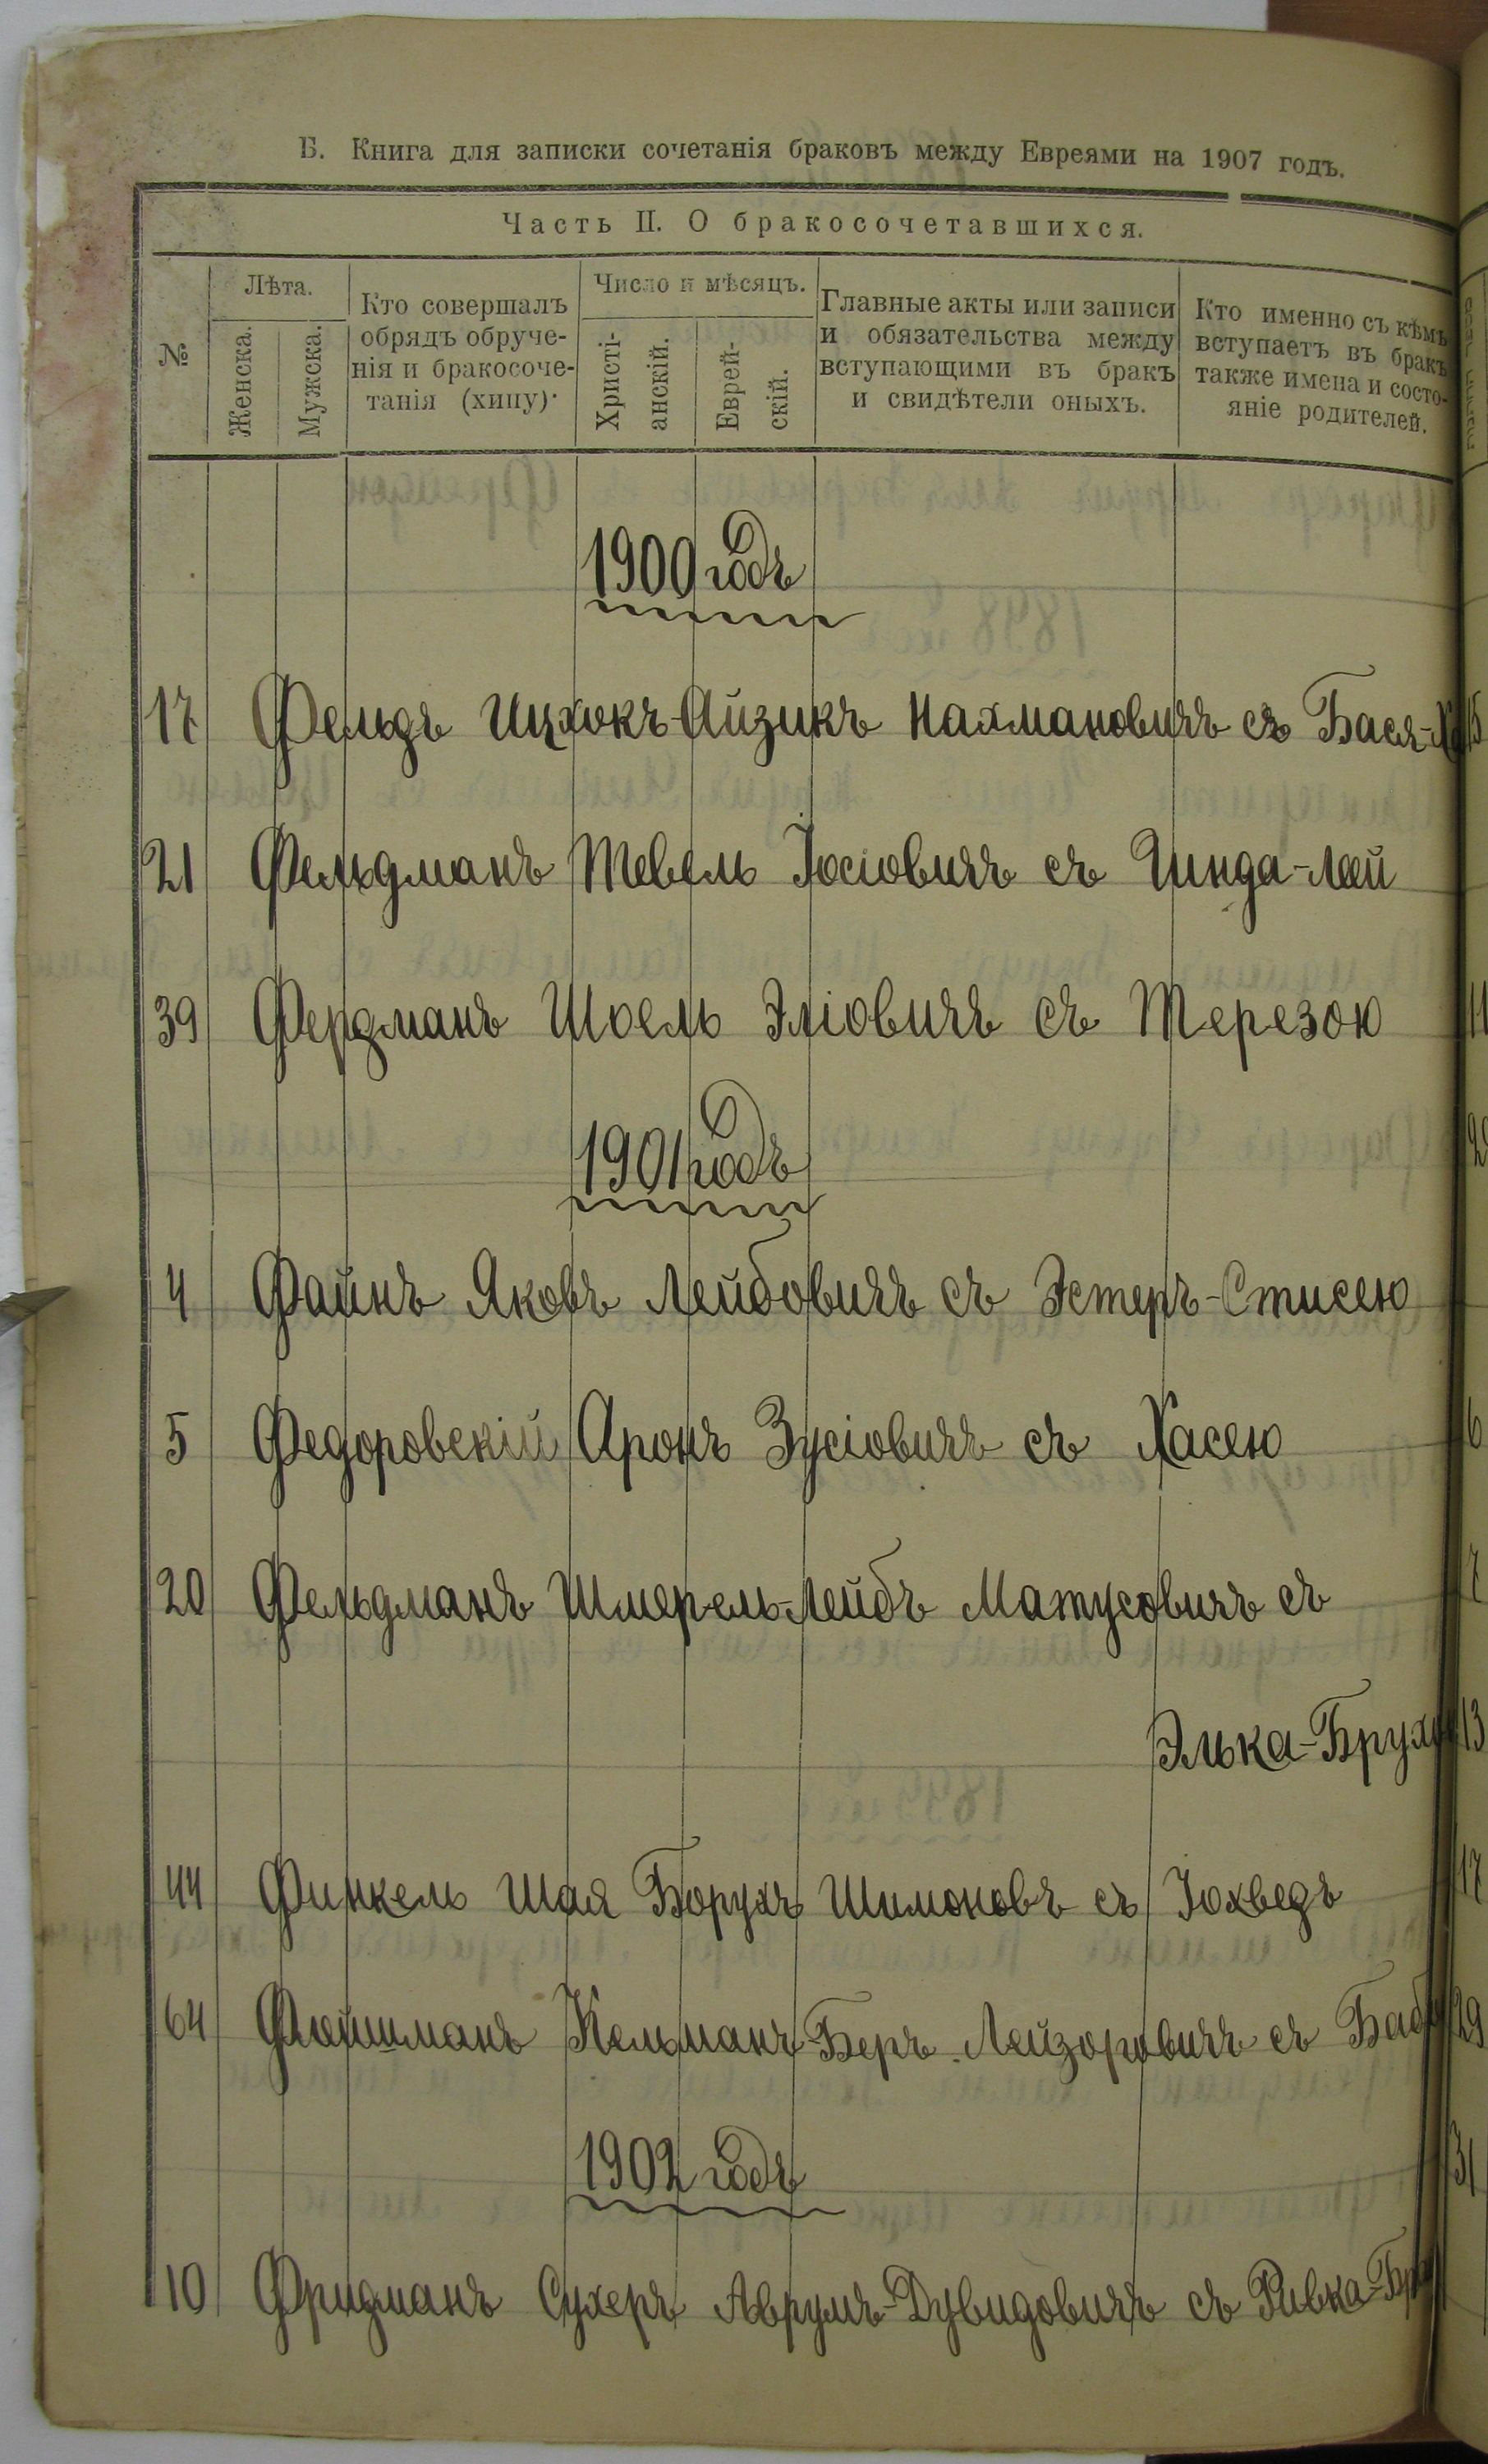 Б. Книга для записки сочетанія браковъ между Евреями на 1907 годъ.
Часть II. О бракосочетавшихся.
№
Лѣта.
Женска.
Мужска.
Кто совершалъ
обрядъ обруче-
нія и бракосоче-
танія (хипу).
Число и мѣсяцъ.
Христі-
анскій.
Еврей-
скій.
Главные акты или записи
и обязательства между
вступающими въ бракъ
и свидѣтели оныхъ.
Кто именно съ кѣмъ
вступаетъ въ бракъ
также имена и состо-
яніе родителей.
1900 годъ
17 Фельдъ Ицхокъ-Айзикъ Нахмановичъ съ Бася-
21 Фельдманъ Тевель Іосіовичъ съ Гинда-Леей
39 Фердманъ Шоель Эліовичъ съ Терезою
1901 годъ
4 Файнъ Яковъ Лейбовичъ съ Эстеръ-Стисею
5 Федоровскій Аронъ Зусіовичъ съ Хасею
20 Фельдманъ Шмерель-Лейбъ Матусовичъ съ
Элька-Брухо
44 Финкель Шая Борухъ Шимоновъ съ Іохведъ
64 Флойшманъ Кельманъ-Беръ Лейзоровичъ съ
1902 годъ
10 Фридманъ Сухеръ Аврумъ-Дувидовичъ съ Ривка-